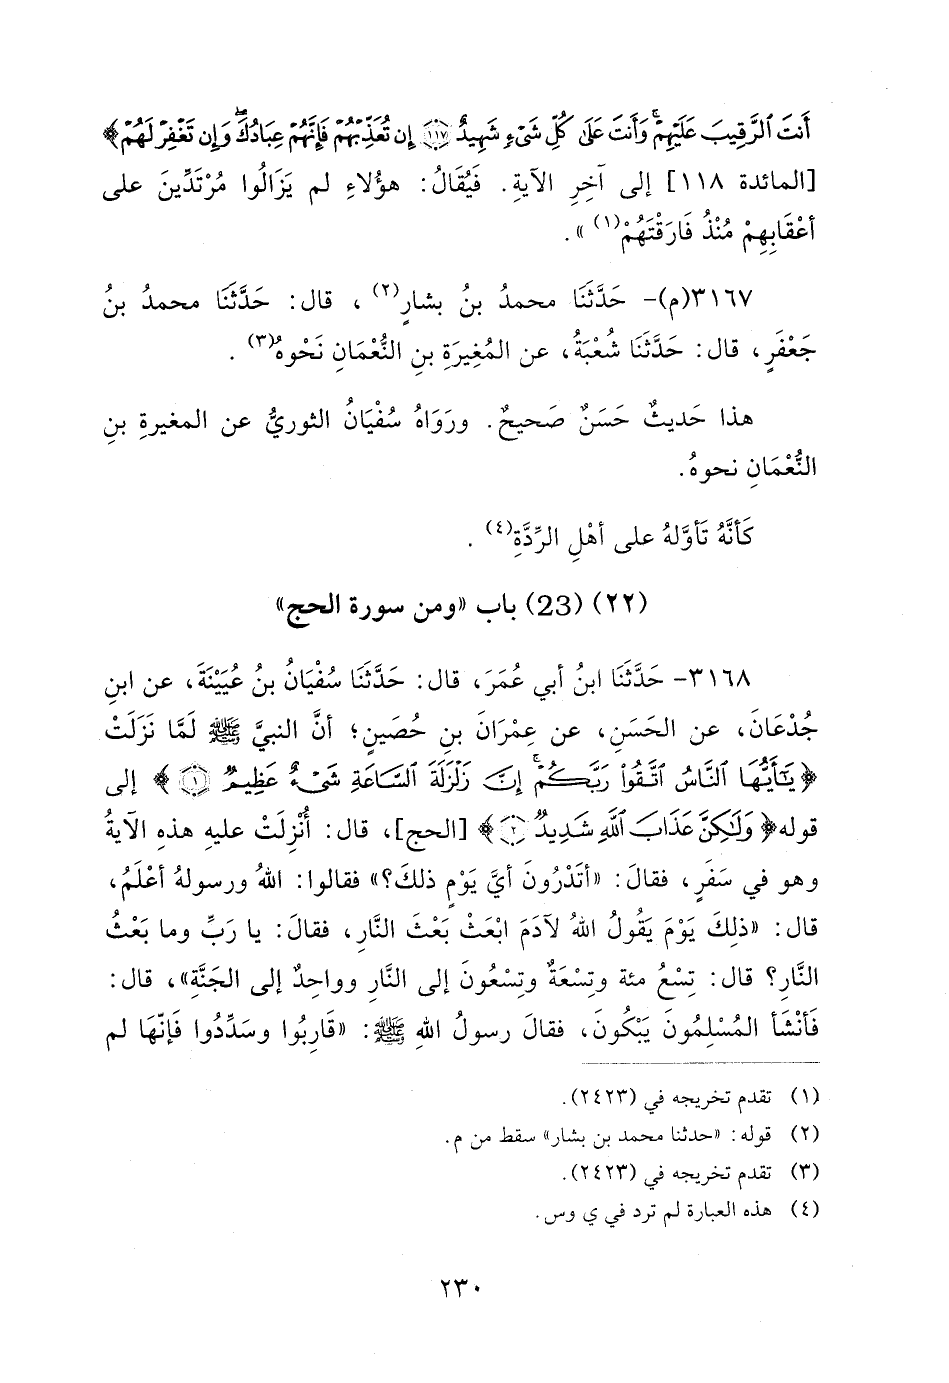 أَنتَ ٱلرَّقِيبَ عَلَيْهِمْ ۚ وَأَنتَ عَلَىٰ كُلِّ شَىْءٍ شَهِيدٌ ﴿١١٧﴾ إِن تُعَذِّبْهُمْ فَإِنَّهُمْ عِبَادُكَ ۖ وَإِن تَغْفِرْ لَهُمْ﴾
[المائدة ١١٨] إلى آخِرِ الآيةِ. فَيُقَالُ: هؤُلاءِ لم يَزَالُوا مُرْتَدِّينَ على
أعْقَابِهِمْ مُنْذُ فَارَقْتَهُمْ(١)».
٣١٦٧(م)- حَدَّثنَا محمدُ بنُ بشارٍ(٢)، قال: حَدَّثنَا محمدُ بنُ
جَعْفَرٍ، قال: حَدَّثنَا شُعْبَةُ، عن المُغِيرَةِ بنِ النُّعْمَانِ نَحْوهُ(٣).
هذا حَديثٌ حَسَنٌ صَحيحٌ. ورَوَاهُ سُفْيَانُ الثوريُّ عن المغيرةِ بنِ
النُّعْمَانِ نحوهُ.
كَأنَّهُ تَأوَّلهُ على أهْلِ الرِّدَّةِ(٤).
(٢٢) (23) باب «ومن سورة الحج»
٣١٦٨- حَدَّثَنَا ابنُ أبي عُمَرَ، قال: حَدَّثنَا سُفْيَانُ بنُ عُيَيْنَةَ، عن ابنِ
جُدْعَانَ، عن الحَسَنِ، عن عِمْرَانَ بنِ حُصَينٍ؛ أنَّ النبيَّ ﷺ لَمَّا نَزَلَتْ
﴿يَٰٓأَيُّهَا ٱلنَّاسُ ٱتَّقُوا۟ رَبَّكُمْ ۚ إِنَّ زَلْزَلَةَ ٱلسَّاعَةِ شَىْءٌ عَظِيمٌ ﴿١﴾﴾ إلى
قوله ﴿وَلَٰكِنَّ عَذَابَ ٱللَّهِ شَدِيدٌ ﴿٢﴾﴾ [الحج]، قال: أُنْزِلَتْ عليهِ هذهِ الآيةُ
وهو في سَفَرٍ، فقالَ: «أتَدْرُونَ أيَّ يَوْمٍ ذلكَ؟» فقالوا: اللهُ ورسولهُ أعْلَمُ،
قال: «ذلِكَ يَوْمَ يَقُولُ اللهُ لآدَمَ ابْعَثْ بَعْثَ النَّارِ، فقالَ: يا رَبِّ وما بَعْثُ
النَّارِ؟ قال: تِسْعُ مئة وتِسْعَةٌ وتِسْعُونَ إلى النَّارِ وواحِدٌ إلى الجَنَّةِ»، قال:
فَأنْشَأ المُسْلِمُونَ يَبْكُونَ، فقالَ رسولُ اللهِ ﷺ: «قَارِبُوا وسَدِّدُوا فَإنَّهَا لم
(١) تقدم تخريجه في (٢٤٢٣).
(٢) قوله: «حدثنا محمد بن بشار» سقط من م.
(٣) تقدم تخريجه في (٢٤٢٣).
(٤) هذه العبارة لم ترد في ي وس.
٢٣٠